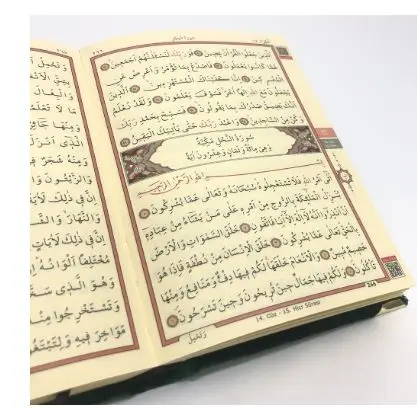 سُورَةُ الْحِجْرِ
الَّذِينَ جَعَلُوا الْقُرْاٰنَ عِضِينَ فَوَرَبِّكَ لَنَسْـَٔلَنَّهُمْ اَجْمَعِينَ
عَمَّا كَانُوا يَعْمَلُونَ فَاصْدَعْ بِمَا تُؤْمَرُ وَاَعْرِضْ عَنِ
الْمُشْرِكِينَ اِنَّا كَفَيْنَاكَ الْمُسْتَهْزِئِينَ الَّذِينَ
يَجْعَلُونَ مَعَ اللّٰهِ اِلٰهًا اٰخَرَ فَسَوْفَ يَعْلَمُونَ وَلَقَدْ نَعْلَمُ
اَنَّكَ يَضِيقُ صَدْرُكَ بِمَا يَقُولُونَ فَسَبِّحْ بِحَمْدِ رَبِّكَ
وَكُنْ مِنَ السَّاجِدِينَ وَاعْبُدْ رَبَّكَ حَتّٰى يَأْتِيَكَ الْيَقِينُ
سُورَةُ النَّحْلِ مَكِّيَّةٌ
وَهِيَ مِائَةٌ وَثَمَانٍ وَعِشْرُونَ اٰيَةً
بِسْمِ اللّٰهِ الرَّحْمٰنِ الرَّحِيمِ
اَتٰى اَمْرُ اللّٰهِ فَلَا تَسْتَعْجِلُوهُ سُبْحَانَهُ وَتَعَالٰى عَمَّا يُشْرِكُونَ
يُنَزِّلُ الْمَلٰئِكَةَ بِالرُّوحِ مِنْ اَمْرِهِ عَلٰى مَنْ يَشَاءُ مِنْ عِبَادِهِ
اَنْ اَنْذِرُوا اَنَّهُ لَا اِلٰهَ اِلَّا اَنَا فَاتَّقُونِ خَلَقَ السَّمٰوَاتِ وَالْاَرْضَ
بِالْحَقِّ تَعَالٰى عَمَّا يُشْرِكُونَ خَلَقَ الْاِنْسَانَ مِنْ نُطْفَةٍ فَاِذَا هُوَ
خَصِيمٌ مُبِينٌ وَالْاَنْعَامَ خَلَقَهَا لَكُمْ فِيهَا دِفْءٌ وَمَنَافِعُ وَمِنْهَا
تَأْكُلُونَ وَلَكُمْ فِيهَا جَمَالٌ حِينَ تُرِيحُونَ وَحِينَ تَسْرَحُونَ
وَتَحْمِلُ
14. Cüz - 15. Hicr Sûresi
وَتَحْمِلُ اَ
بِشِقِّ الْاَنْ
وَالْبِغَالَ
مَا لَا تَعْلَمُ
وَمِنْهَا جَائِ
الَّذِى اَنْزَلَ
وَمِنْهُ شَجَرٌ
وَالزَّيْتُونَ وَ
اِنَّ فِى ذٰلِكَ لَاٰيَةً
وَالنَّهَارَ وَالشَّ
اِنَّ فِى ذٰلِكَ لَاٰيَاتٍ
مُخْتَلِفًا اَلْوَانُهُ اِ
وَهُوَ الَّذِى سَخَّ
وَتَسْتَخْرِجُوا مِنْهُ
مَوَاخِرَ فِيهِ وَلِتَبْتَغُ